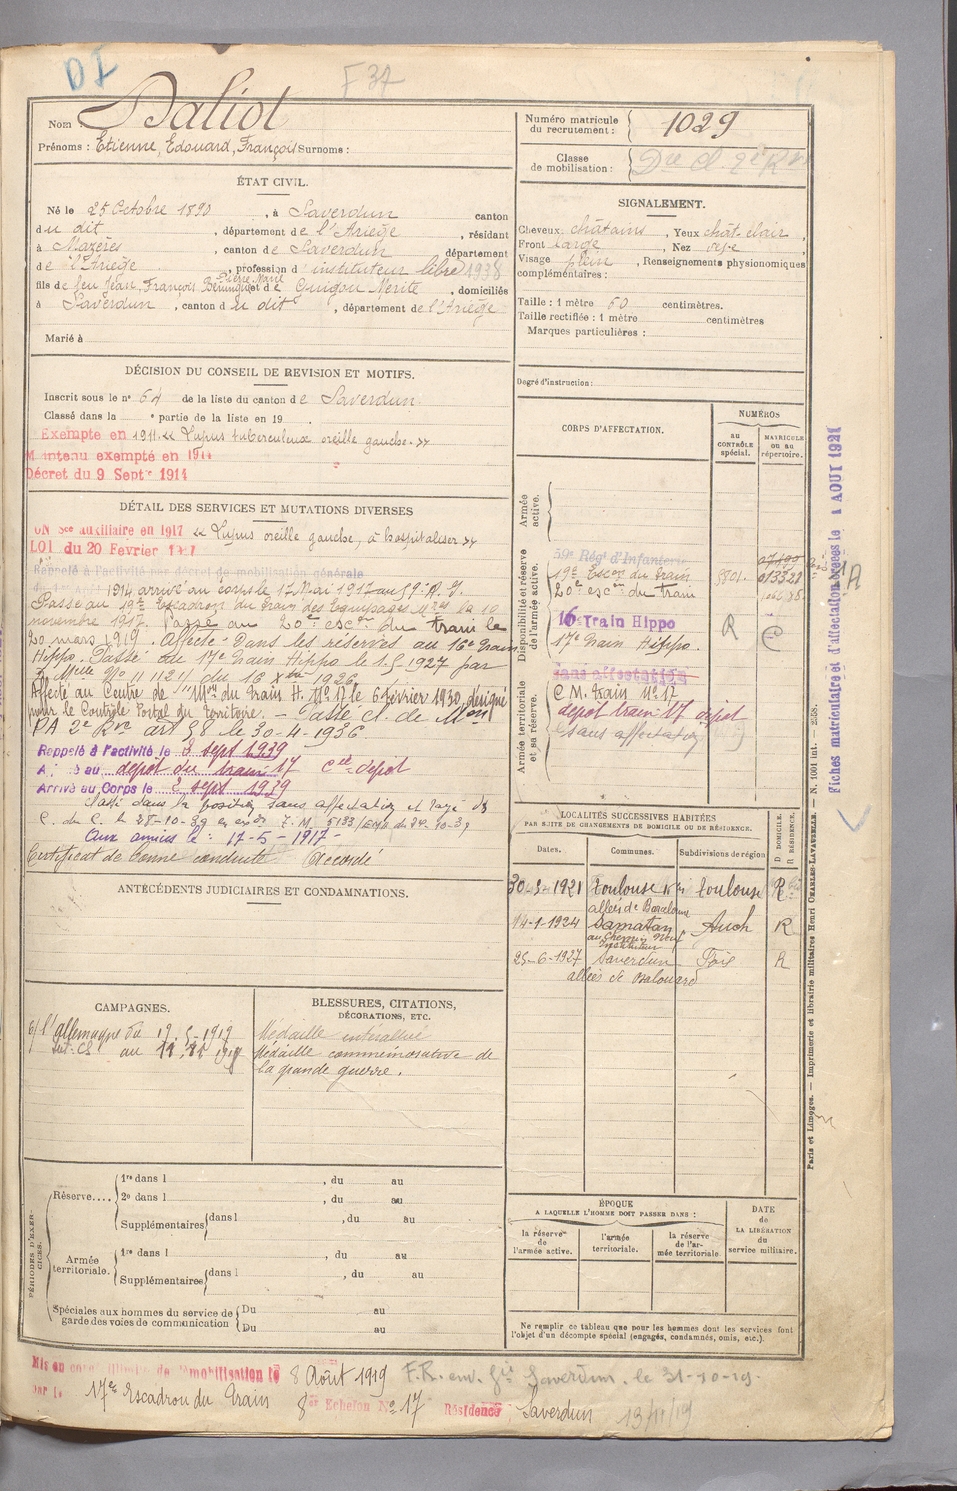 DI
F 37
Nom : Daliot
Prénoms : Etienne, Edouard, François Surnoms :
ÉTAT CIVIL.
Né le 25 Octobre 1890, à Saverdun canton
du dit, département de l'Ariège, résidant
à Mazères, canton de Saverdun département
de l'Ariège, profession d'instituteur libre 1938
fils de feu Jean, François et de Guigou Merite, domiciliés
à Saverdun, canton du dit, département de l'Ariège
Marié à
DÉCISION DU CONSEIL DE REVISION ET MOTIFS.
Inscrit sous le n° 64 de la liste du canton de Saverdun
Classé dans la e partie de la liste en 19
Exempté en 1911 « Lupus tuberculeux oreille gauche. »
Maintenu exempté en 1914
Décret du 9 Septre 1914
DÉTAIL DES SERVICES ET MUTATIONS DIVERSES
ON Sce auxiliaire en 1917 « Lupus oreille gauche, à hospitaliser »
LOI du 20 Février 1917
Rappelé à l'activité par décret de mobilisation générale
1914 arrivé au corps le 17 Mai 1917
Passé au 19e Escadron du train des Equipages Mres le 10
novembre 1917. Passé au 20e escon du train le
20 mars 1919. Affecté dans les réserves au 16e train
Hippo. Passé au 17e train Hippo le 1.5 1927 par
1926
Affecté au Centre de Mon du Train H. N° 17 le 6 février 1930, désigné
pour le Contrôle Postal du territoire. – Passé cl. de Mon
PA 2e Rve art 58 le 30-4-1936
Rappelé à l'activité le 3 sept 1939
Affecté au dépôt du train 17 Cie dépôt
Arrivé au Corps le 3 sept 1939
Passé dans la position sans affectation et rayé des
C. du C. le 28-10-39 5133/EMA du 24-10-39
Aux armées le : 17-5-1917-
Certificat de bonne conduite Accordé
ANTÉCÉDENTS JUDICIAIRES ET CONDAMNATIONS.
CAMPAGNES.
c/ l'allemagne du 17.5.1917
au 1919
BLESSURES, CITATIONS,
DÉCORATIONS, ETC.
Médaille interalliée
Médaille commémorative de
la grande guerre.
PÉRIODES D'EXERCICES.
Réserve.... 1re dans l , du au
2e dans l , du au
Supplémentaires dans l , du au
Armée territoriale. 1re dans l , du au
Supplémentaires dans l , du au
Spéciales aux hommes du service de garde des voies de communication Du au
Du au
Numéro matricule du recrutement : 1029
Classe de mobilisation :
SIGNALEMENT.
Cheveux châtains, Yeux chât. clair,
Front large, Nez
Visage plein, Renseignements physionomiques
complémentaires :
Taille : 1 mètre 60 centimètres.
Taille rectifiée : 1 mètre centimètres
Marques particulières :
Degré d'instruction :
CORPS D'AFFECTATION.
NUMÉROS
AU CONTRÔLE spécial.
MATRICULE ou au répertoire.
Armée active.
Disponibilité et réserve de l'armée active.
59e Rég' d'Infanterie
19e Escon du train 8801. 013328
20e escon du train
16e Train Hippo R
17e train Hippo.
Armée territoriale et sa réserve.
sans affectation
C M. Train N° 17
dépôt train 17 dépôt
sans affectation
LOCALITÉS SUCCESSIVES HABITÉES
PAR SUITE DE CHANGEMENTS DE DOMICILE OU DE RÉSIDENCE.
Dates. Communes. Subdivisions de région D DOMICILE. R RÉSIDENCE.
30-5-1921 Toulouse Toulouse R
allées de Barcelone
14-1-1924 Samatan Auch R
au Chemin Neuf
Instituteur
25-6-1927 Saverdun Foix R
allées de
ÉPOQUE
A LAQUELLE L'HOMME DOIT PASSER DANS :
la réserve de l'armée active.
l'armée territoriale.
la réserve de l'armée territoriale.
DATE de LA LIBÉRATION du service militaire.
Ne remplir ce tableau que pour les hommes dont les services font
l'objet d'un décompte spécial (engagés, condamnés, omis, etc.).
Fiches matriculaire et d'affectation créées le AOUT 1921
Paris et Limoges. — Imprimerie et librairie militaires Henri CHARLES-LAVAUZELLE. — N. 1001 int. — 2558.
Mis en congé illimité de démobilisation le 8 Août 1919 F.R. Saverdun. le 31-10-19.
par le 17e Escadron du Train 8er Echelon N° 17 Résidence Saverdun 13/11/19